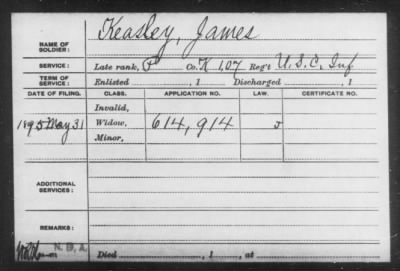 Keasley, James
NAME OF SOLDIER:
SERVICE: Late rank, P Co. K 107 Reg't U.S.C. Inf
TERM OF SERVICE: Enlisted , 1 Discharged , 1
DATE OF FILING. CLASS. APPLICATION NO. LAW. CERTIFICATE NO.
Invalid,
1895 May 31 Widow, 614,914 J
Minor,
ADDITIONAL SERVICES:
REMARKS:
N.D.A.
Died , 1 , at